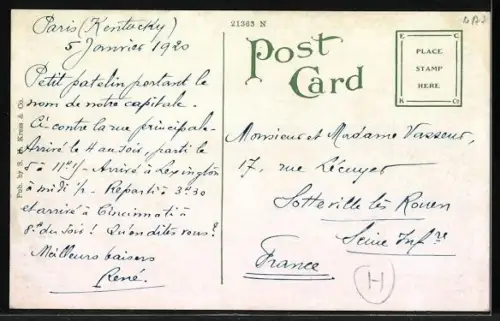 Paris (Kentucky)
5 Janvier 1920
Petit patelin portant le
nom de notre capitale.
Ci-contre la rue principale.
Arrivé le 4 au soir, parti le
5 à 11h½ - Arrivé à Lexington
à midi ½ - Reparti à 3h30
et arrivé à Cincinnati à
8h du soir! Qu'en dites vous?
Meilleurs baisers
René.
Pub. by S. H. Kress & Co.
21363 N
Post Card
PLACE
STAMP
HERE
K Co
Monsieur et Madame Vasseur,
17, rue Lécuyer
Sotteville lès Rouen
Seine Infre
France
H